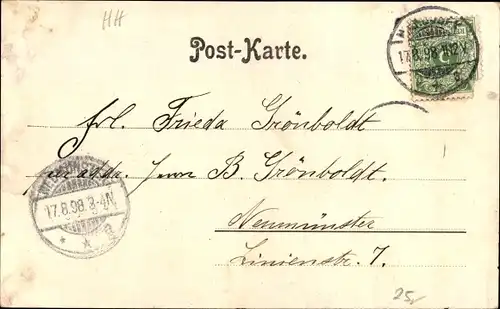 HH
Post-Karte.
17.8.98.11-12V.
Frl. Frieda Grönboldt
per addr. Herrn B. Grönboldt.
17.8.98.3-4N
Neumünster
Linienstr. 7.
25,-